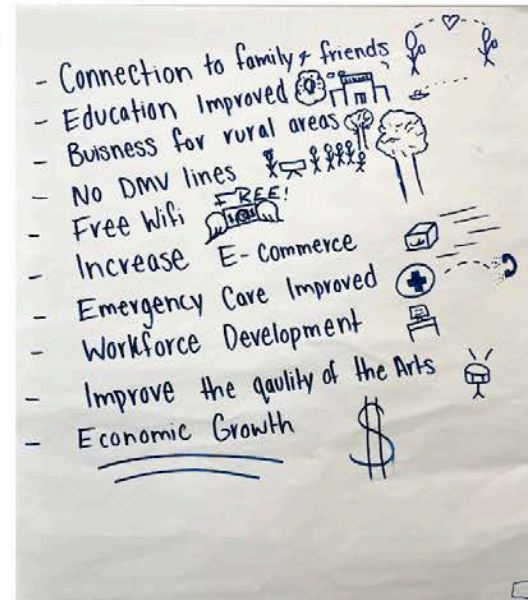 - Connection to family & friends
- Education Improved
- Buisness for rural areas
- No DMV lines
FREE!
- Free Wifi
- Increase E-Commerce
- Emergency Care Improved
- Workforce Development
- Improve the qaulity of the Arts
- Economic Growth
$